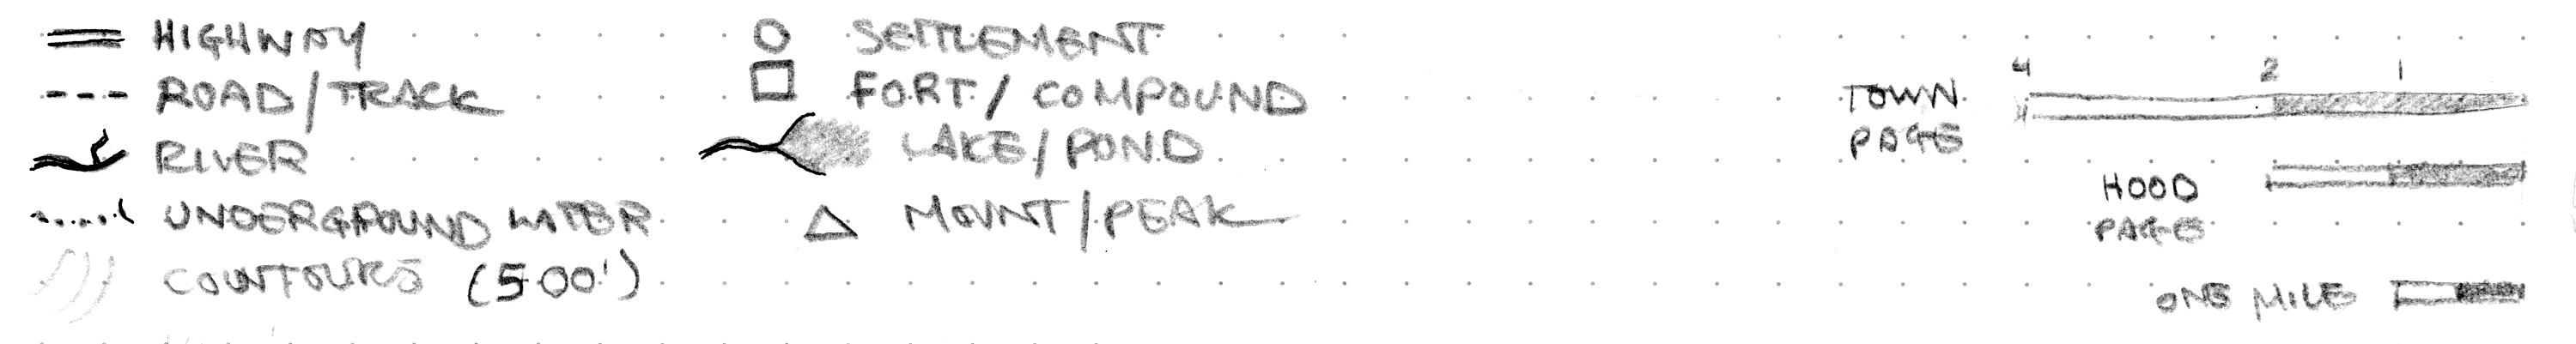 HIGHWAY
ROAD/TRACK
RIVER
UNDERGROUND WATER
CONTOURS (500')
SETTLEMENT
FORT/COMPOUND
LAKE/POND
MOUNT/PEAK
4 2 1
TOWN
PAGE
HOOD
PAGE
ONE MILE